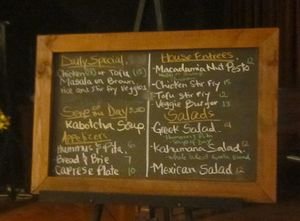 Daily Special
Chicken (15) or Tofu (13)
Masala on Brown
Rice and Stir fry Veggies
Soup of the Day 5.00
Kabotcha Soup
Appetizers
Hummus & Pita 6
Bread & Brie 7
Caprese Plate 10
House Entrees
- Macadamia Nut Pesto 12
- Chicken Stir Fry 15
- Tofu Stir fry 12
- Veggie Burger 13
Salads
- Greek Salad 9
- Kahumana Salad 12
- Mexican Salad 12